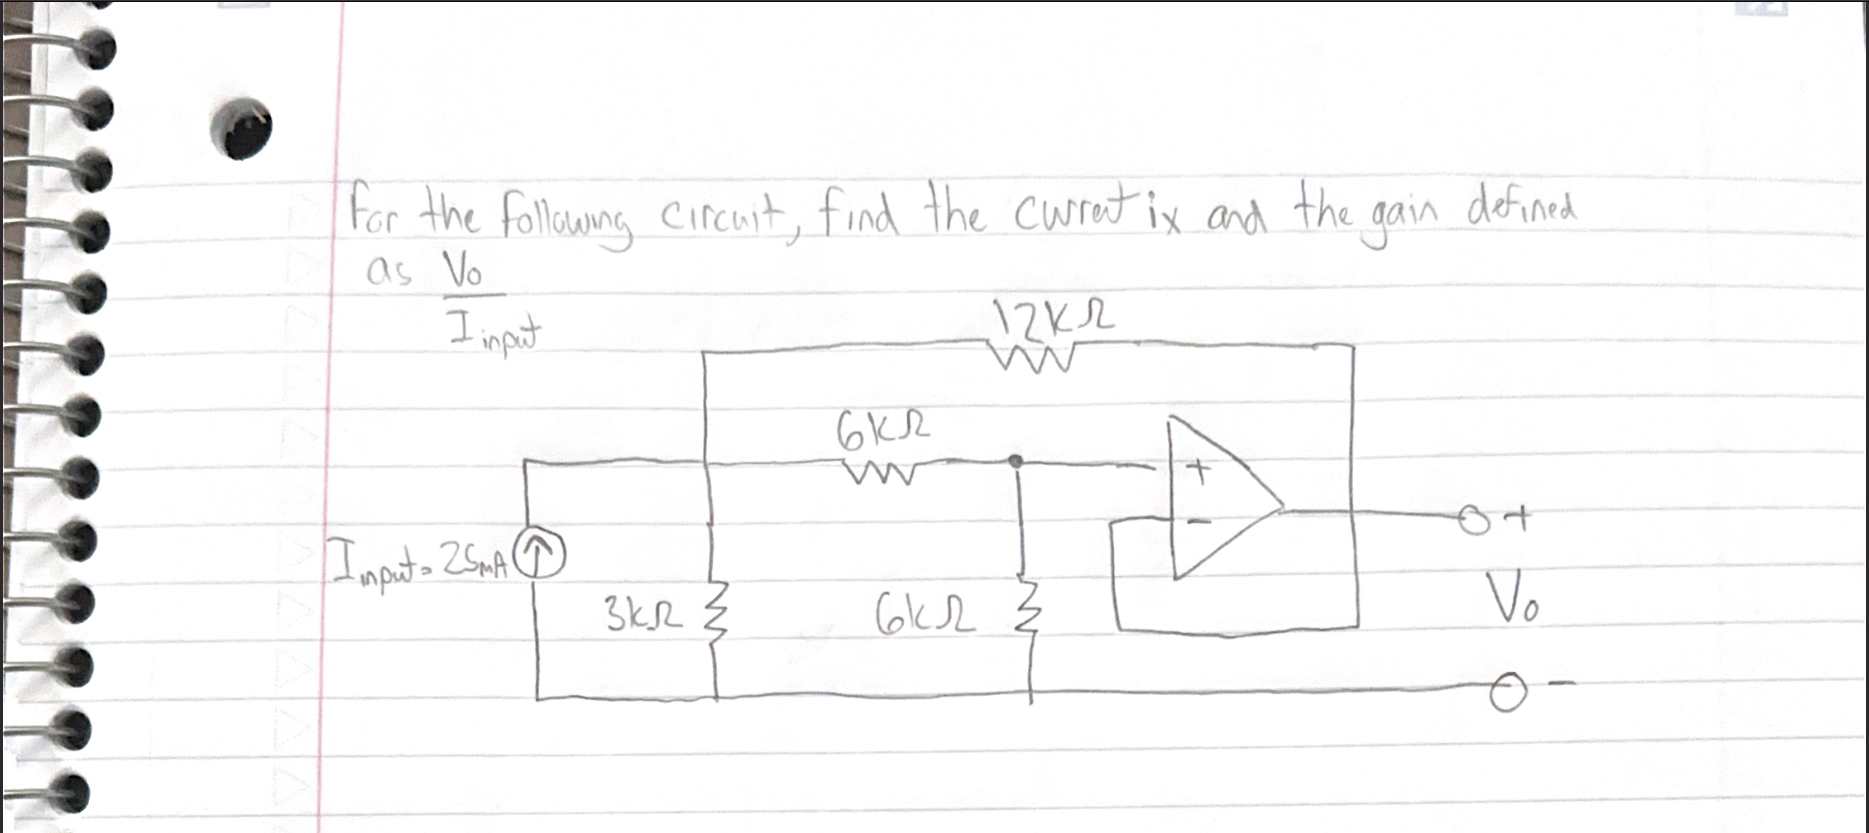 For the following circuit, find the current ix and the gain defined
as Vo
I input
12kΩ
6kΩ
+
−
+
I input = 25mA
3kΩ
6kΩ
Vo
−